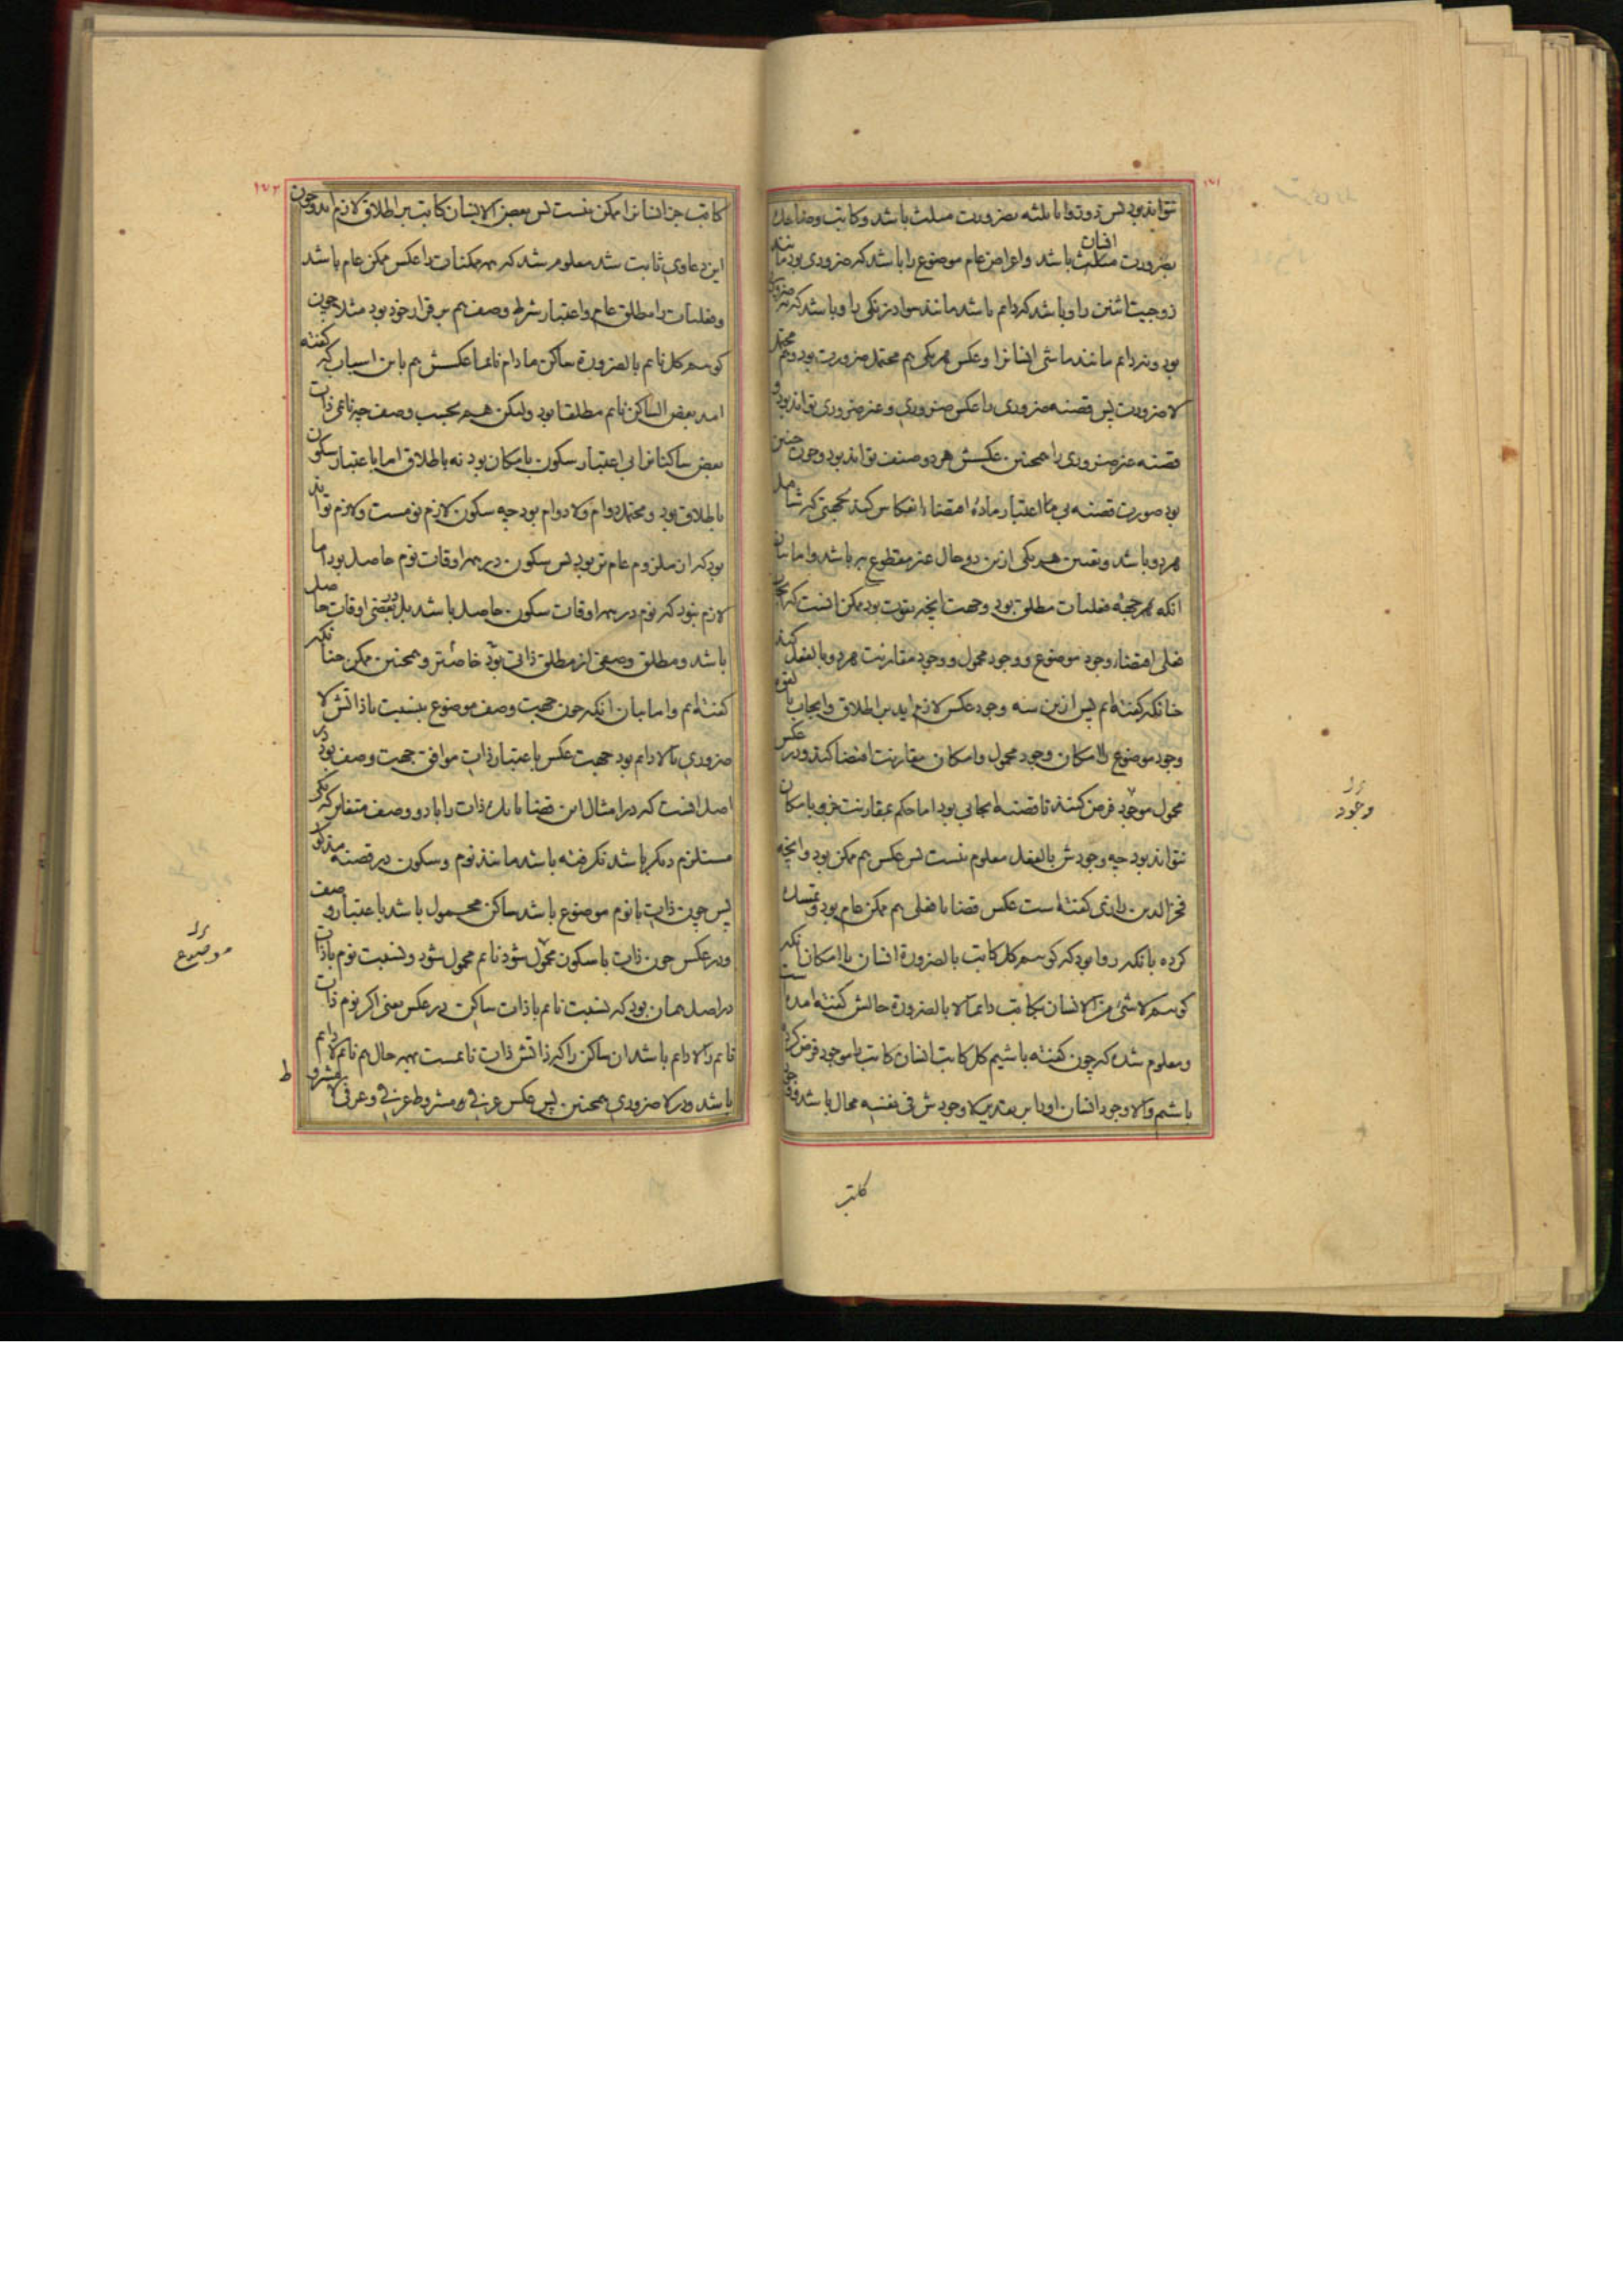 نتواند بود پس ذوزوایا ثلثه بضرورت مثلث باشد و کاتب و ضاحک
بضرورت انسان باشد و اعراض عام موضوع را باشد که ضروری بود مانند
زوجیت اثنین را و باشد که دایم باشد مانند سواد زنکی را و باشد که نه ضروری
بود و نه دایم مانند ماشی انسانرا و عکس هر یکی هم محتمل ضرورت بود و هم محتمل
لا ضرورت پس قضیه ضروری را عکس ضروری و غیر ضروری تواند بود و
قضیه غیر ضروری را همچنین عکسش هر دو صنف تواند بود و چون چنین
بود صورت قضیه بی اعتبار ماده اقتضاء انعکاس کند بجهتی که شامل
هر دو باشد و تعیین هر یکی ازین دو حال غیر مقطوع به باشد و اما بیان
انکه هرچه فعلیات مطلق بود و جهت انچه بقوت بود ممکن انست که
فعلی اقتضاء وجود موضوع و وجود محمول و وجود مقارنت هر دو بالفعل کند
چنانکه کفته‌ایم پس ازین سه وجود عکس لازم اید بر اطلاق و ایجاب بالقوه
وجود موضوع را امکان وجود محمول و امکان مقارنت اقتضا کند و در عکس
محمول موجود فرض کنند تا قضیه ایجابی بود اما حکم بمقارنت جزو بامکان
نتواند بود چه وجودش بالفعل معلوم نیست پس عکس هم ممکن بود و انچه
فخرالدین رازی کفته است عکس قضایا فعلی هم ممکن عام بود و تمسک
کرده بانکه روا بود که کوییم کل کاتب بالضرورة انسان با امکان انکه
کوییم لا شئ من الانسان بکاتب دایما لا بالضرورة حالش کفته امده است
و معلوم شده که چون کفته باشیم کل کاتب انسان کاتب را موجود فرض کرده
باشیم و الا وجود انسان او را بر تقدیر لا وجودش فی نفسه محال باشد و وجود
کاتب
وجود
کاتب جز انسانرا ممکن نیست پس بعض الانسان کاتب بر اطلاق لازم اید و چون
این دعاوی ثابت شد معلوم شد که همه ممکنات را عکس ممکن عام باشد
و فعلیات را مطلق عام و اعتبار شرط وصف هم بر قرار خود بود مثلا چون
کوییم کل نائم بالضرورة ساکن مادام نایما عکسش هم باین اسباب که کفته
امد بعض الساکن نائم مطلقا بود ولیکن هم بحسب وصف چه نائمی ذات
بعض ساکنانرا بی اعتبار سکون بامکان بود نه باطلاق اما باعتبار سکون
باطلاق بود و محتمل دوام و لا دوام بود چه سکون لازم نومست و لازم تواند
بود که از ملزوم عام‌تر بود پس سکون در همه اوقات نوم حاصل بود اما
لازم نبود که نوم در همه اوقات سکون حاصل باشد بل در بعضی اوقات حاصل
باشد و مطلق وصفی از مطلق ذاتی بود خاص‌تر و همچنین ممکن چنانکه
کفته‌ایم و اما بیان انکه چون جهت وصف موضوع بنسبت با ذاتش لا
ضروری یا لا دایم بود جهت عکس باعتبار ذات موافق جهت وصف بود
اصل انست که در امثال این قضایا یک ذات را با دو وصف متغایر که یکی
مستلزم دیکر باشد نکرفته باشد مانند نوم و سکون در قضیه مذکور
پس چون ذات با نوم موضوع باشد ساکن محمول باشد باعتبار وصف
و در عکس چون ذات با سکون محمول شود نائم محمول شود و نسبت نوم با ذات
در اصل همان بود که نسبت نائم با ذات ساکن در عکس یعنی اکر نوم ذات
نائم را لا دایم باشد ان ساکن را که ذاتش ذات نائمست بهر حال هم نائم لا دایم
باشد و در لا ضروری همچنین پس عکس عرفی و مشروط عرفی و عرفی لا
موضوع
ط